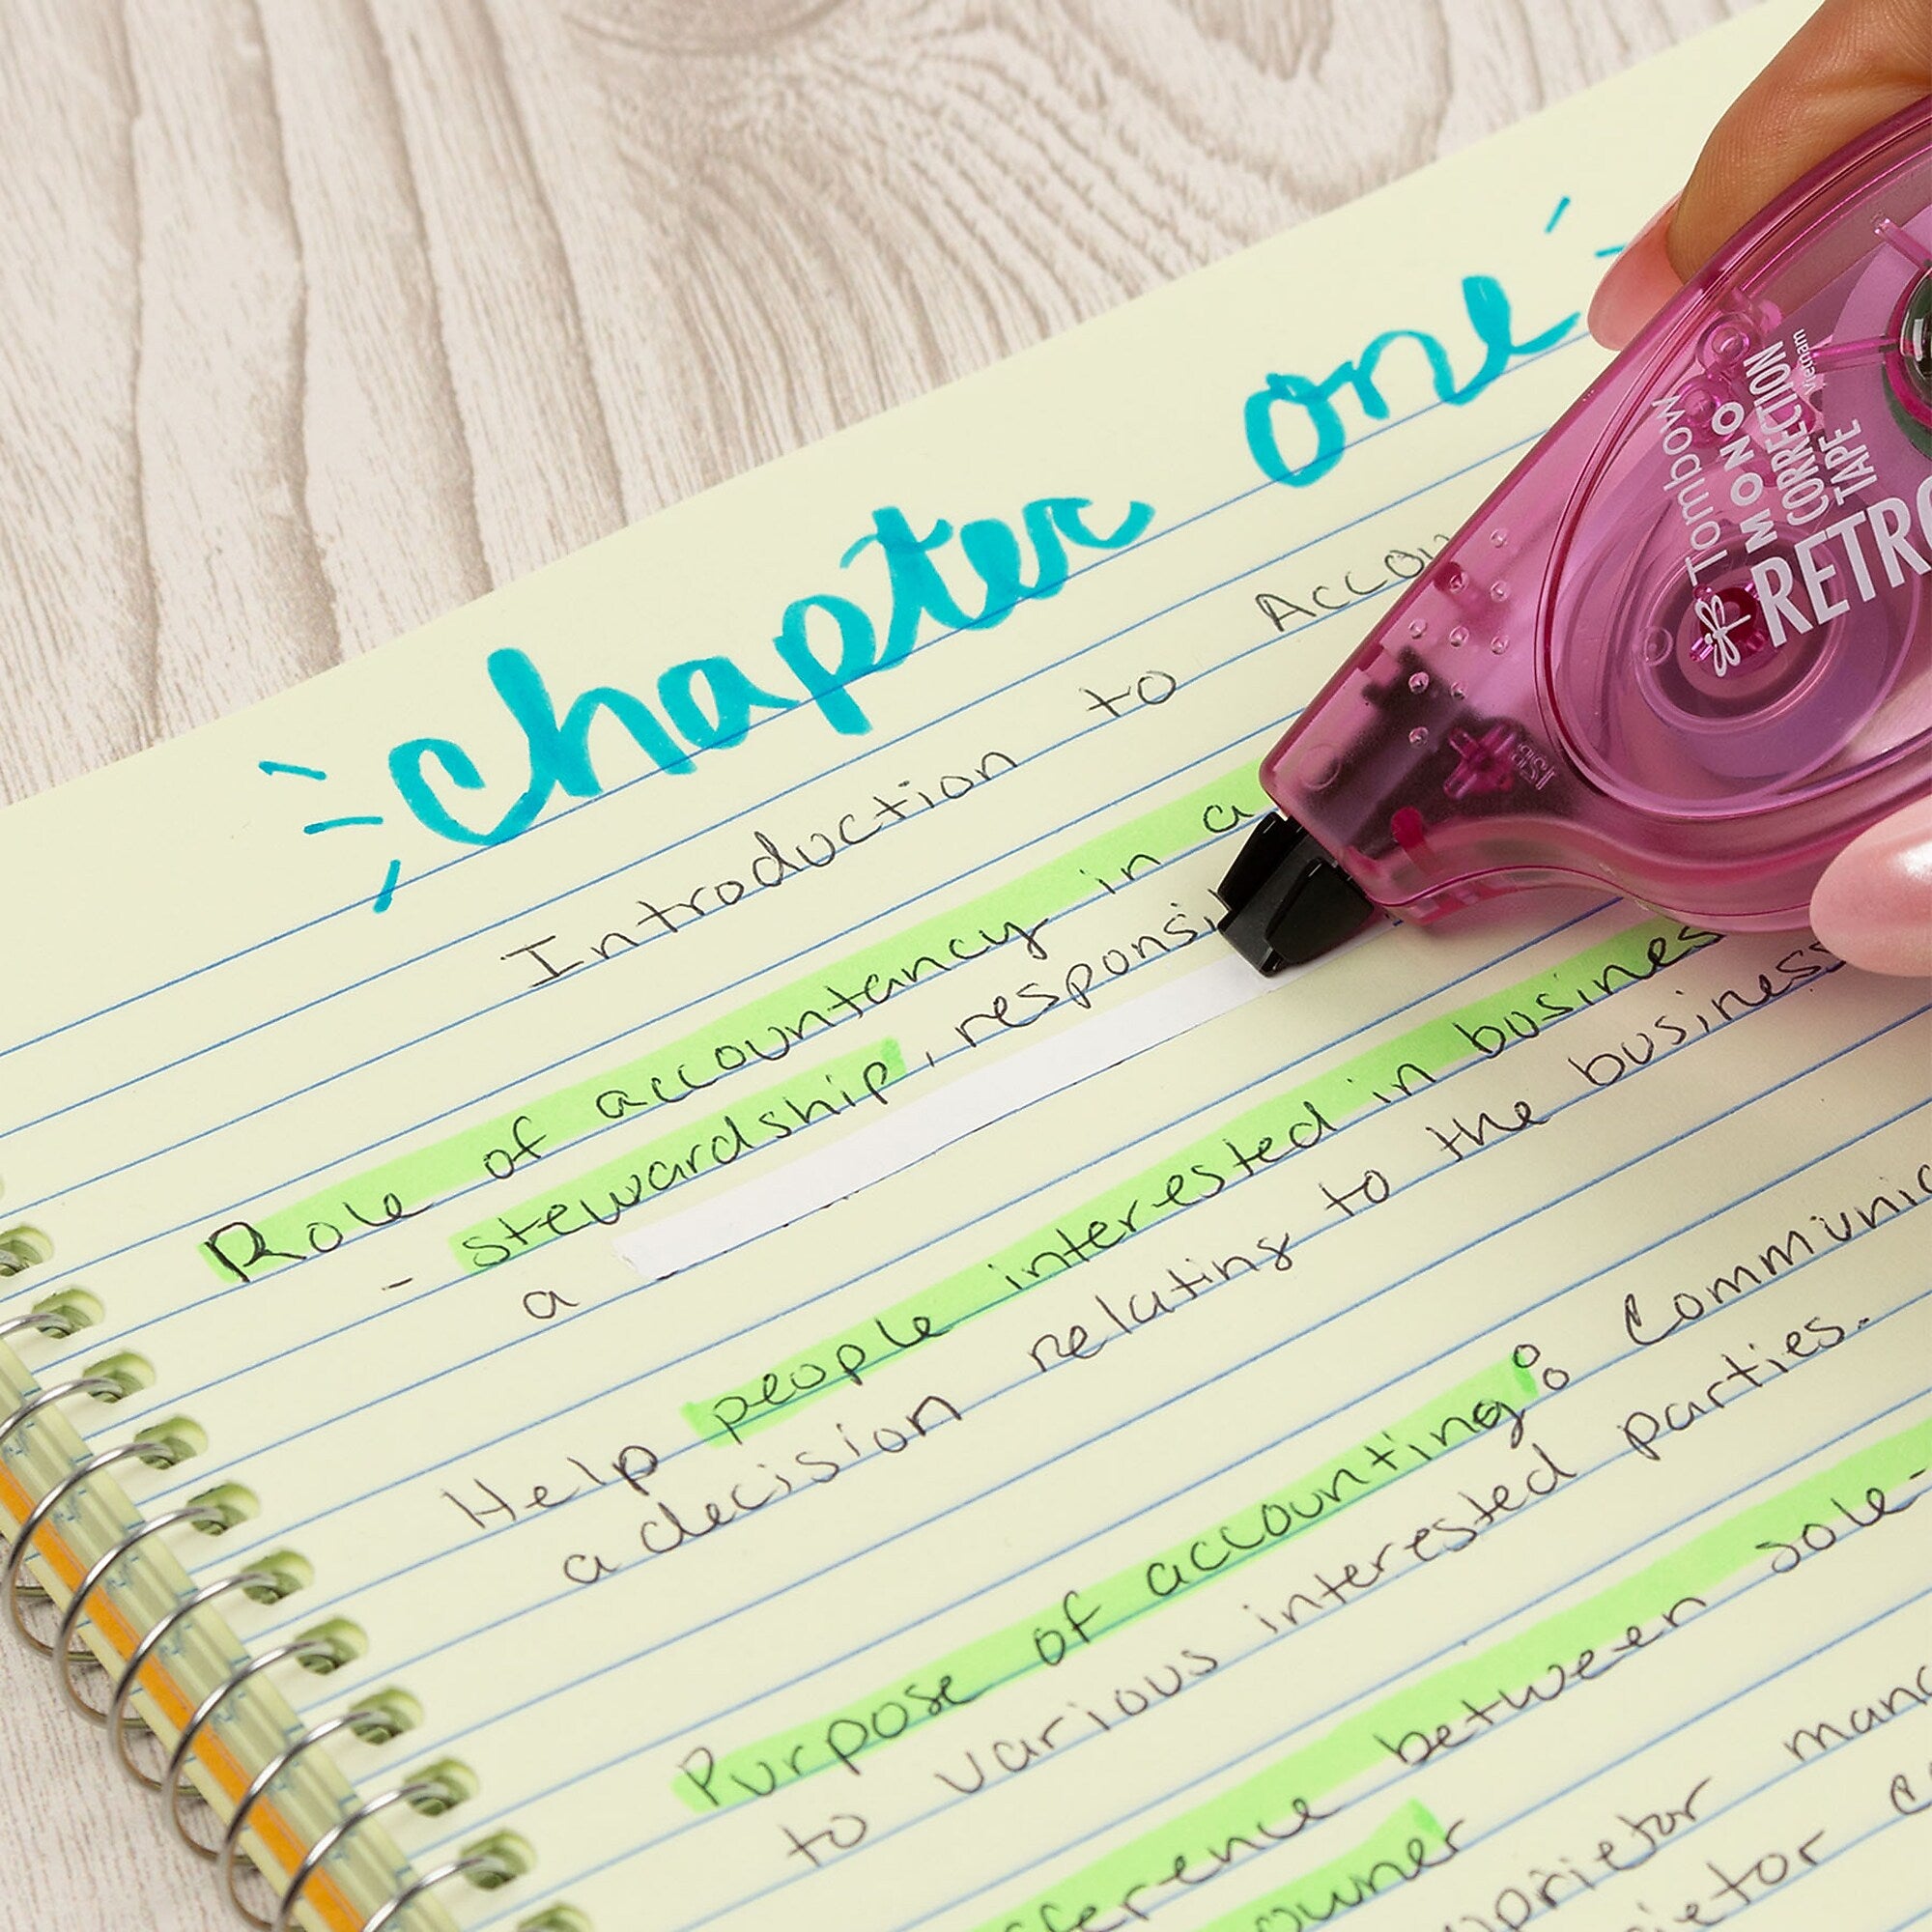 chapter one
Introduction to Accou
Role of accountancy in a
- stewardship, responsi
a
Help people interested in business
a decision relating to the business
Purpose of accounting: Communic
to various interested parties.
fference between sole-
owner
oprietor mana
ietor c
Tombow
MONO
CORRECTION
TAPE
Vietnam
RETRO